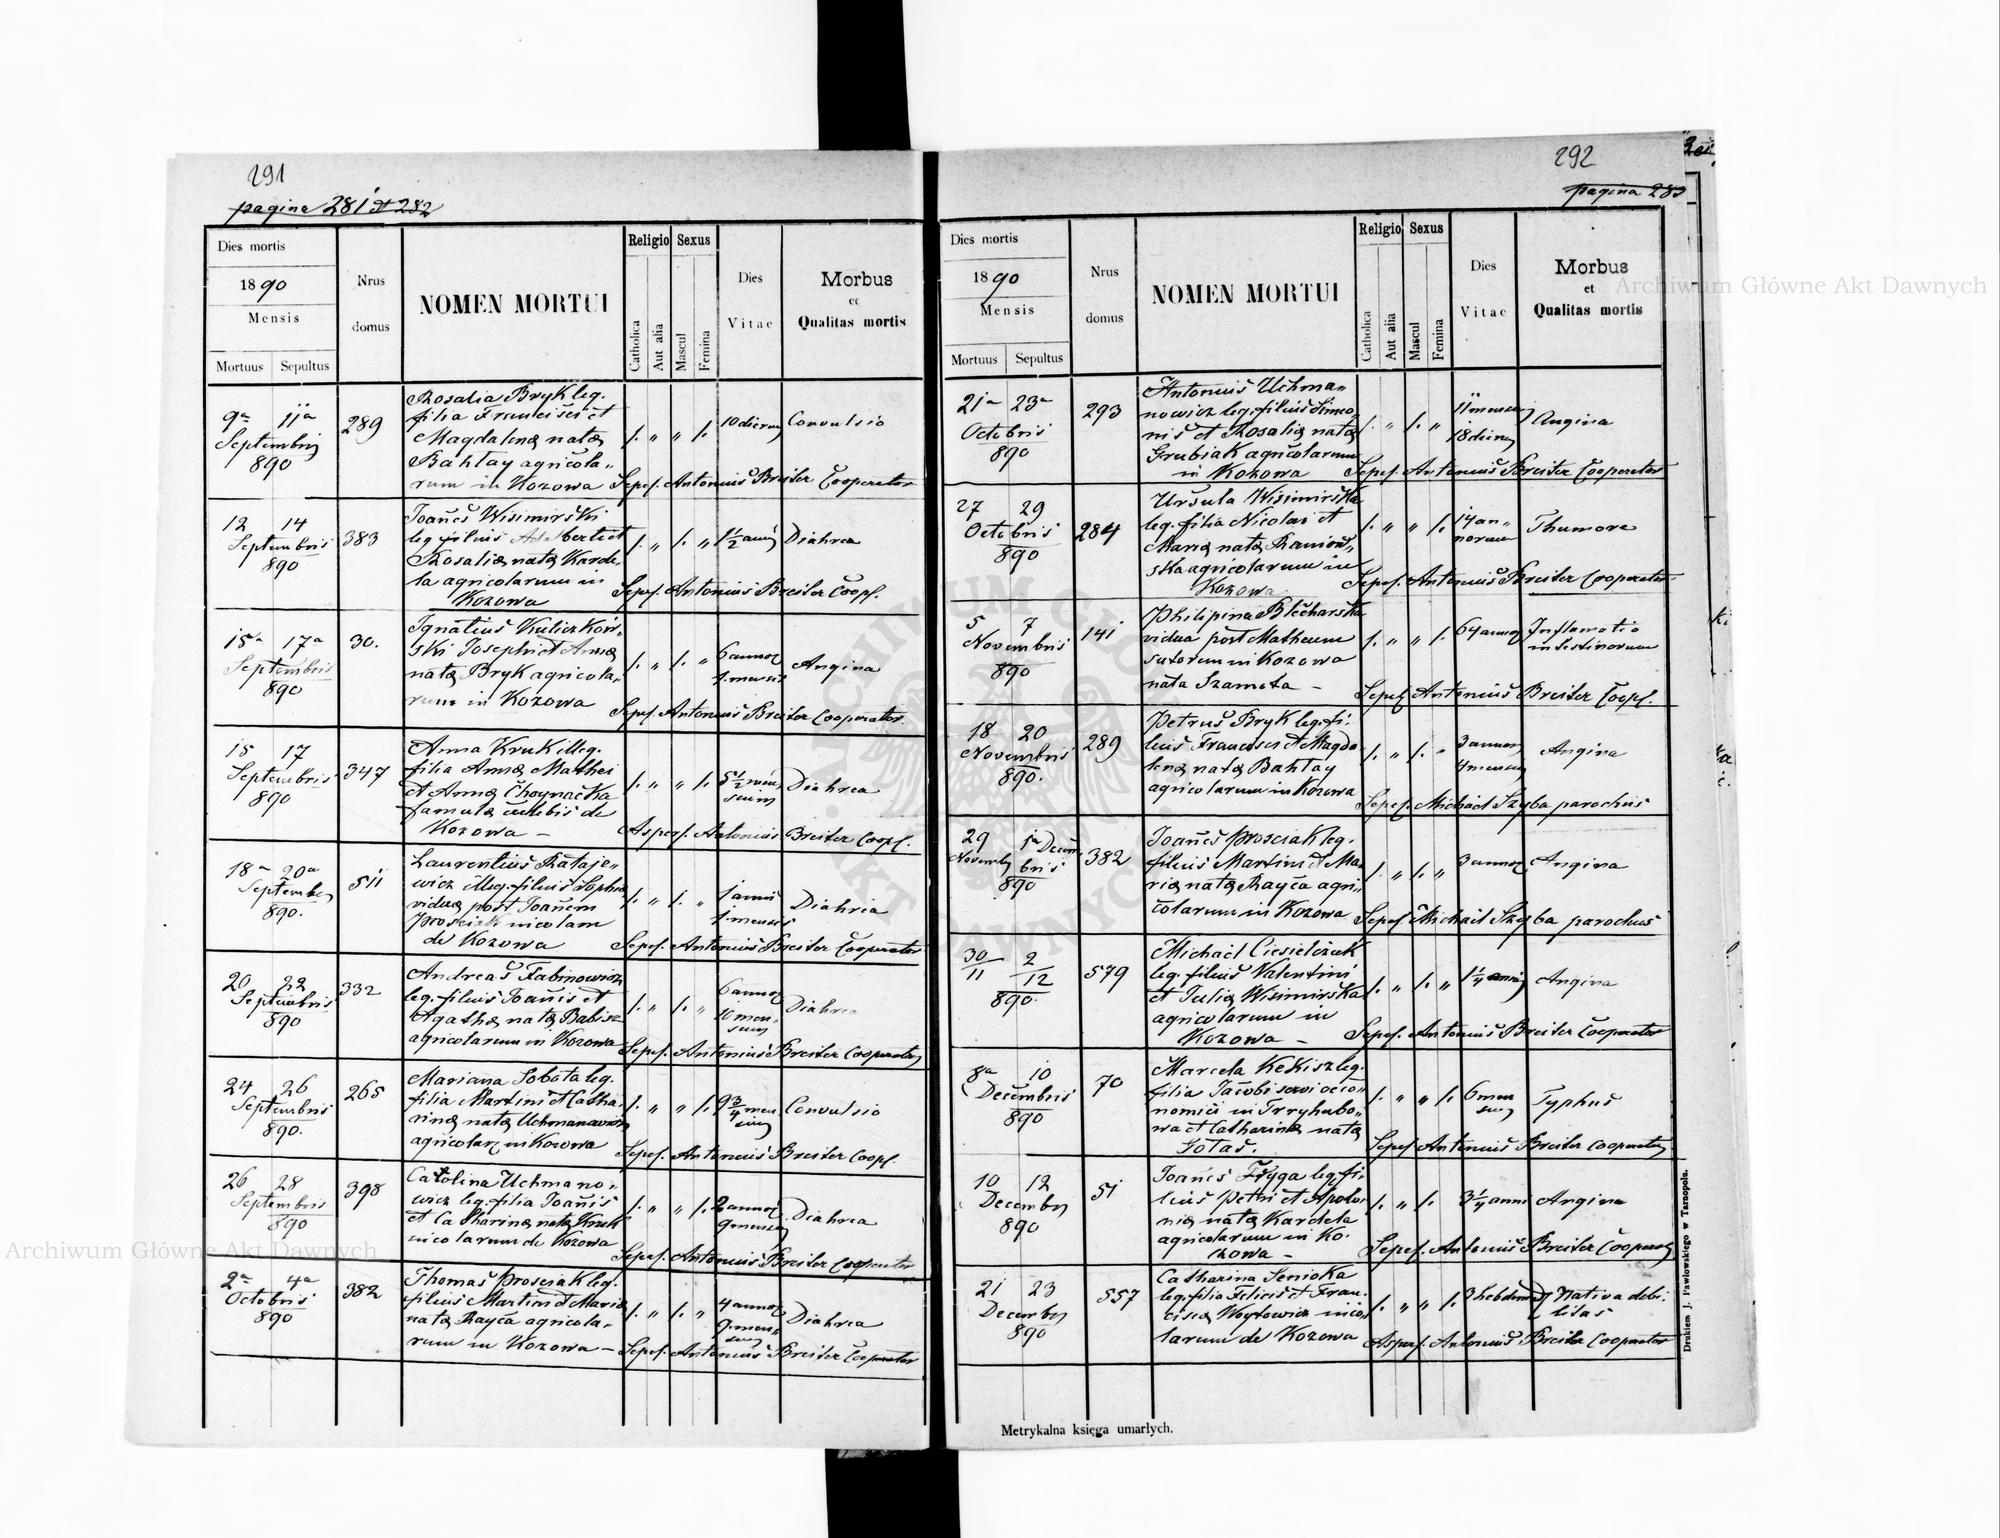 291
pagina 281 et 282
Dies mortis
1890
Mensis
Mortuus Sepultus
Nrus domus
NOMEN MORTUI
Religio
Catholica
Aut alia
Sexus
Mascul
Femina
Dies Vitae
Morbus
et
Qualitas mortis
9a 11a
Septembris
890
289
Rosalia Bryk leg.
filia Francisci et
Magdalenæ natæ
Bahtay agricola-
rum in Kozowa
10 dierum
Convulsio
Sepel. Antonius Breiter Cooperator
12 14
Septembris
890
383
Joañes Wisimirski
leg. filius Adalberti et
Rosaliæ natæ Karde-
la agricolarum in
Kozowa
1 1/2 anni
Diahrea
Sepel. Antonius Breiter Coopl.
15a 17a
Septembris
890
30.
Ignatius Kuliczkow-
ski Josephi et Annæ
natæ Bryk agricola-
rum in Kozowa
6 annor
1. mensis
Angina
Sepel. Antonius Breiter Cooperator
15 17
Septembris
890
347
Anna Kruk illeg.
filia Annæ Mathei
et Annæ
famulæ cælebis de
Kozowa –
5 1/2 men
sium
Diahrea
Aspers. Antonius Breiter Coopl.
18a 20a
Septembr
890.
511
Laurentius Rataje-
wicz illeg. filius Sophiæ
viduæ post Joañem
Prosciak inicolam
de Kozowa
1 anni
1. mensis
Diahria
Sepel. Antonius Breiter Cooperator
20 22
Septembris
890
332
Andreas Rabinowicz
leg. filius Joañis et
Agathæ natæ Babisz
agricolarum in Kozowa
6 annor
10 men-
sium
Diahrea
Sepel. Antonius Breiter Cooperator
24 26
Septembris
890.
265
Mariana Sobota leg.
filia Martini et Catha-
rinæ natæ Uchmanowicz
agricolar in Kozowa
9 3/4 men
sium
Convulsio
Sepel. Antonius Breiter Coopl.
26 28
Septembris
890
398
Carolina Uchmano-
wicz leg. filia Joañis
et Catharinæ natæ Kruk
inicolarum de Kozowa
2 annor
9 mensium
Diahrea
Sepel. Antonius Breiter Cooperator
2a 4a
Octobris
890
382
Thomas Prosciak leg.
filius Martini et Mariæ
natæ Rayca agricola-
rum in Kozowa –
4 annor
9. men-
sium
Diahrea
Sepel. Antonius Breiter Cooperator
292
pagina 283
Dies mortis
1890
Mensis
Mortuus Sepultus
Nrus domus
NOMEN MORTUI
Religio
Catholica
Aut alia
Sexus
Mascul
Femina
Dies Vitae
Morbus
et
Qualitas mortis
21a 23a
Octobris
890
293
Antonius Uchma-
nowicz leg. filius Simeo-
nis et Rosaliæ natæ
Grubiak agricolarum
in Kozowa
11 mensium
18 dierum
Angina
Sepel. Antonius Breiter Cooperator
27 29
Octobris
890
284
Ursula Wisimirska
leg. filia Nicolai et
Mariæ natæ
ska agricolarum in
Kozowa
14 an-
norum
Thumore
Sepel. Antonius Breiter Cooperator
5 7
Novembris
890
141
Philipina Blecharska
vidua post Matheum
sutorem in Kozowa
nata Szameta –
64 annor
Inflamatio
intestinorum
Sepel. Antonius Breiter Coopl.
18 20
Novembris
890.
289
Petrus Bryk leg. fi-
lius Francisci et Magda
lenæ natæ Bahtay
agricolarum in Kozowa
3 annor
4 mensium
Angina
Sepel. Michael Szyba parochus
29 1a Decem
Novembr bris
890
382
Joañes Prosciak leg.
filius Martini et Ma-
riæ natæ Rayca agri-
colarum in Kozowa
3 annor
Angina
Sepel. Michael Szyba parochus
30/11 2/12
890.
579
Michael Ciesielczuk
leg. filius Valentini
et Juliæ Wisimirska
agricolarum in
Kozowa –
1 1/4 anni
Angina
Sepel. Antonius Breiter Cooperator
8a 10
Decembris
890
70
Marcela Kekisz leg.
filia Jacobi servi oeco-
nomici in
wa et Catharinæ natæ
Gotas.
6 men
sium
Typhus
Sepel. Antonius Breiter Cooperator
10 12
Decembr
890
51
Joañes Fryga leg. fi-
lius Petri et Apolo-
niæ natæ Kardela
agricolarum in Ko-
zowa –
3 1/4 anni
Angina
Sepel. Antonius Breiter Cooperator
21 23
Decembr
890
557
Catharina Senioka
leg. filia Felicis et Fran-
ciscæ Woytowicz inico-
larum de Kozowa
3 hebdomad
Nativa debi-
litas
Aspers. Antonius Breiter Cooperator
Metrykalna księga umarłych.
Drukiem J. Pawłowskiego w Tarnopolu.
Archiwum Główne Akt Dawnych
Archiwum Główne Akt Dawnych
ARCHIWUM GŁÓWNE AKT DAWNYCH